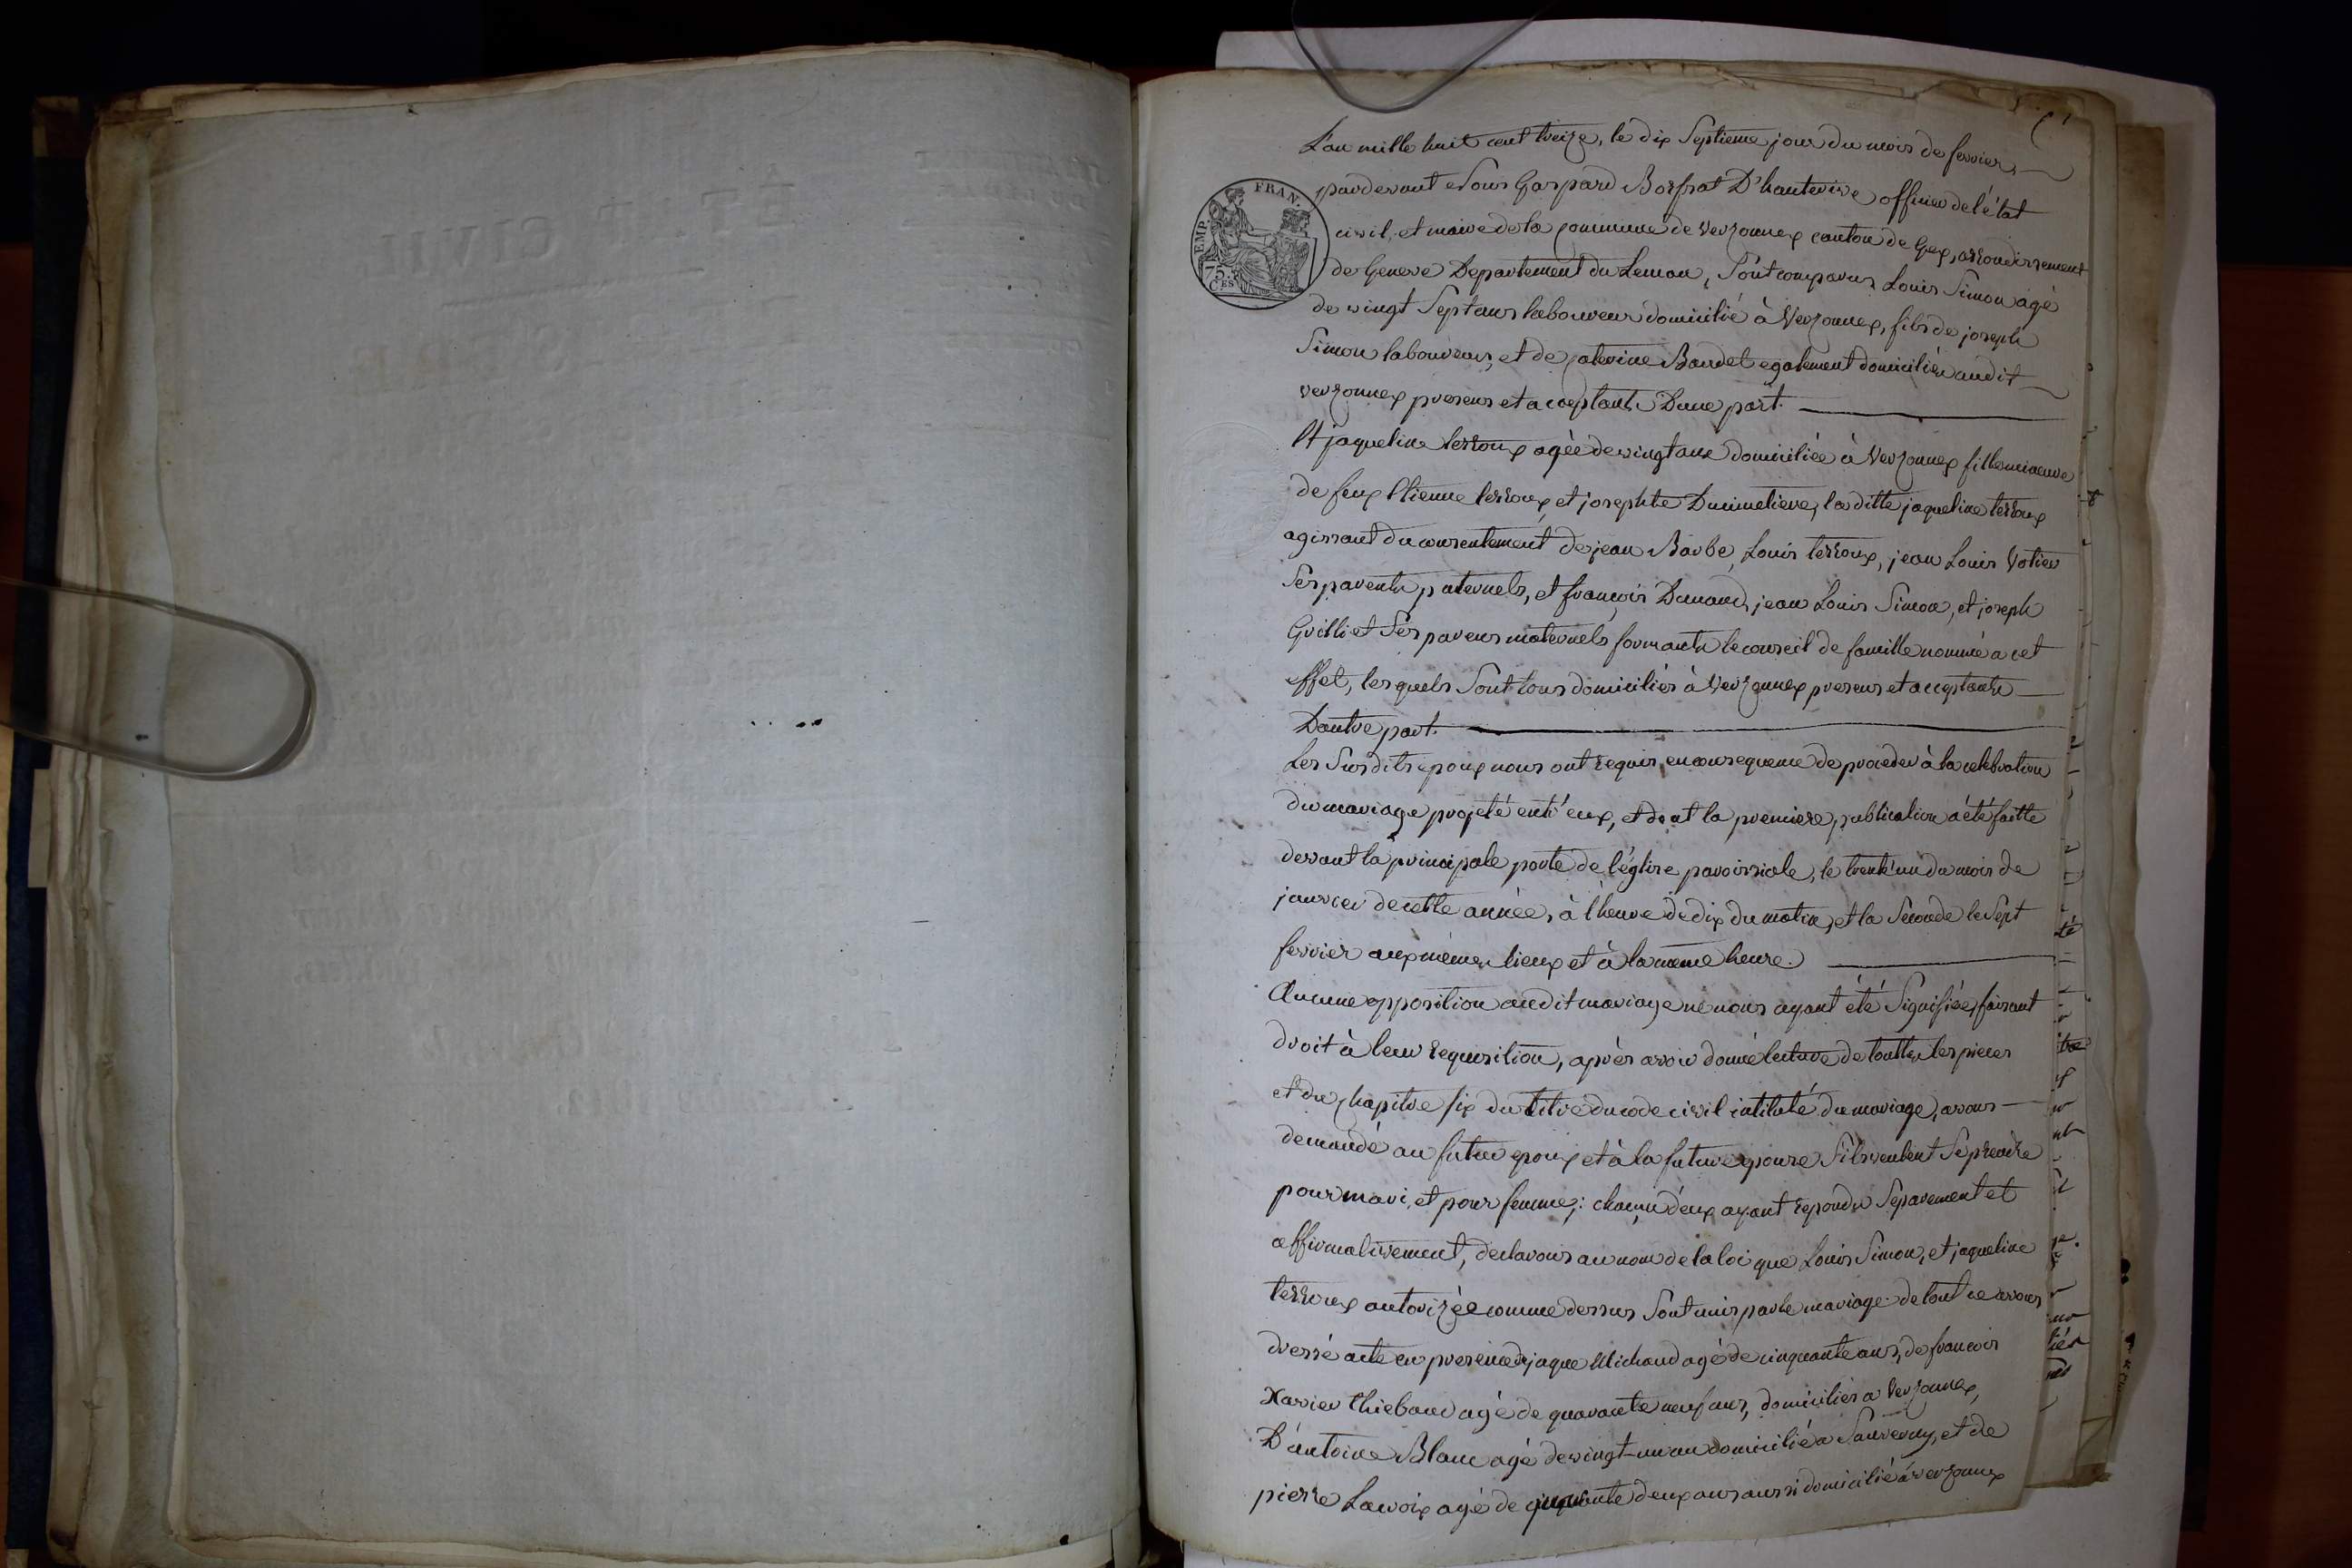 L'an mille huit cent treize, le dix Septieme jour du mois de fevrier,
pardevant Nous Gaspard Bossrat D'hauterive officier de l'état
civil, et maire de la commune de Verzonnex canton de Gex, arrondissement
de Geneve Departement du Leman, Sont comparus Louis Simon agé
de vingt Sept ans laboureur domicilié à Verzonnex, fils de joseph
Simon laboureur, et de Baudet egalement domiciliés audit
verzonnex presens et acceptants D'une part.
Et jaqueline terroux agée de vingt ans domiciliée à Verzonnex fille mineure
de feux Etienne terroux, et josephte Dumueliere, la ditte jaqueline terroux
agissant du consentement de jean Barbe, Louis terroux, jean Louis Votier
Ses parents paternels, et francois Dunand, jean Louis Simon, et joseph
Grilliet Ses parens maternels formants le conseil de famille nommé a cet
effet, lesquels Sont tous domiciliés à Verzonnex presens et acceptants
D'autre part.
Les Susdits epoux nous ont requis en consequence de proceder à la celebration
du mariage projeté entr'eux, et dont la premiere publication a été faitte
devant la principale porte de l'église paroissiale, le trent'un du mois de
janvier de cette année, à l'heure de dix du matin, et la Seconde le Sept
fevrier aux mêmes lieux et à la même heure.
Aucune opposition audit mariage ne nous ayant été Signifiée, faisant
droit à leur requisition, après avoir donné lecture de touttes les pieces
et du chapitre six du titre du code civil intitulé du mariage, avons
demandé au futur epoux et à la future epouse S'ils veulent Se prendre
pour mari, et pour femme; chacun d'eux ayant repondu Separement et
affirmativement, declarons au nom de la loi que Louis Simon, et jaqueline
terroux autorizée comme dessus Sont unis par le mariage. de tout ce avons
dressé acte en presence de jaque Michaud agé de cinquante ans, de francois
Xavier thiebaud agé de quarante neuf ans, domiciliés a Verzonnex,
D'antoine Blanc agé de vingt-un an domicilié a Sauverny, et de
pierre Lavoix agé de cinquante deux ans aussi domicilié à verzonnex
EMP. FRAN.
75. CES